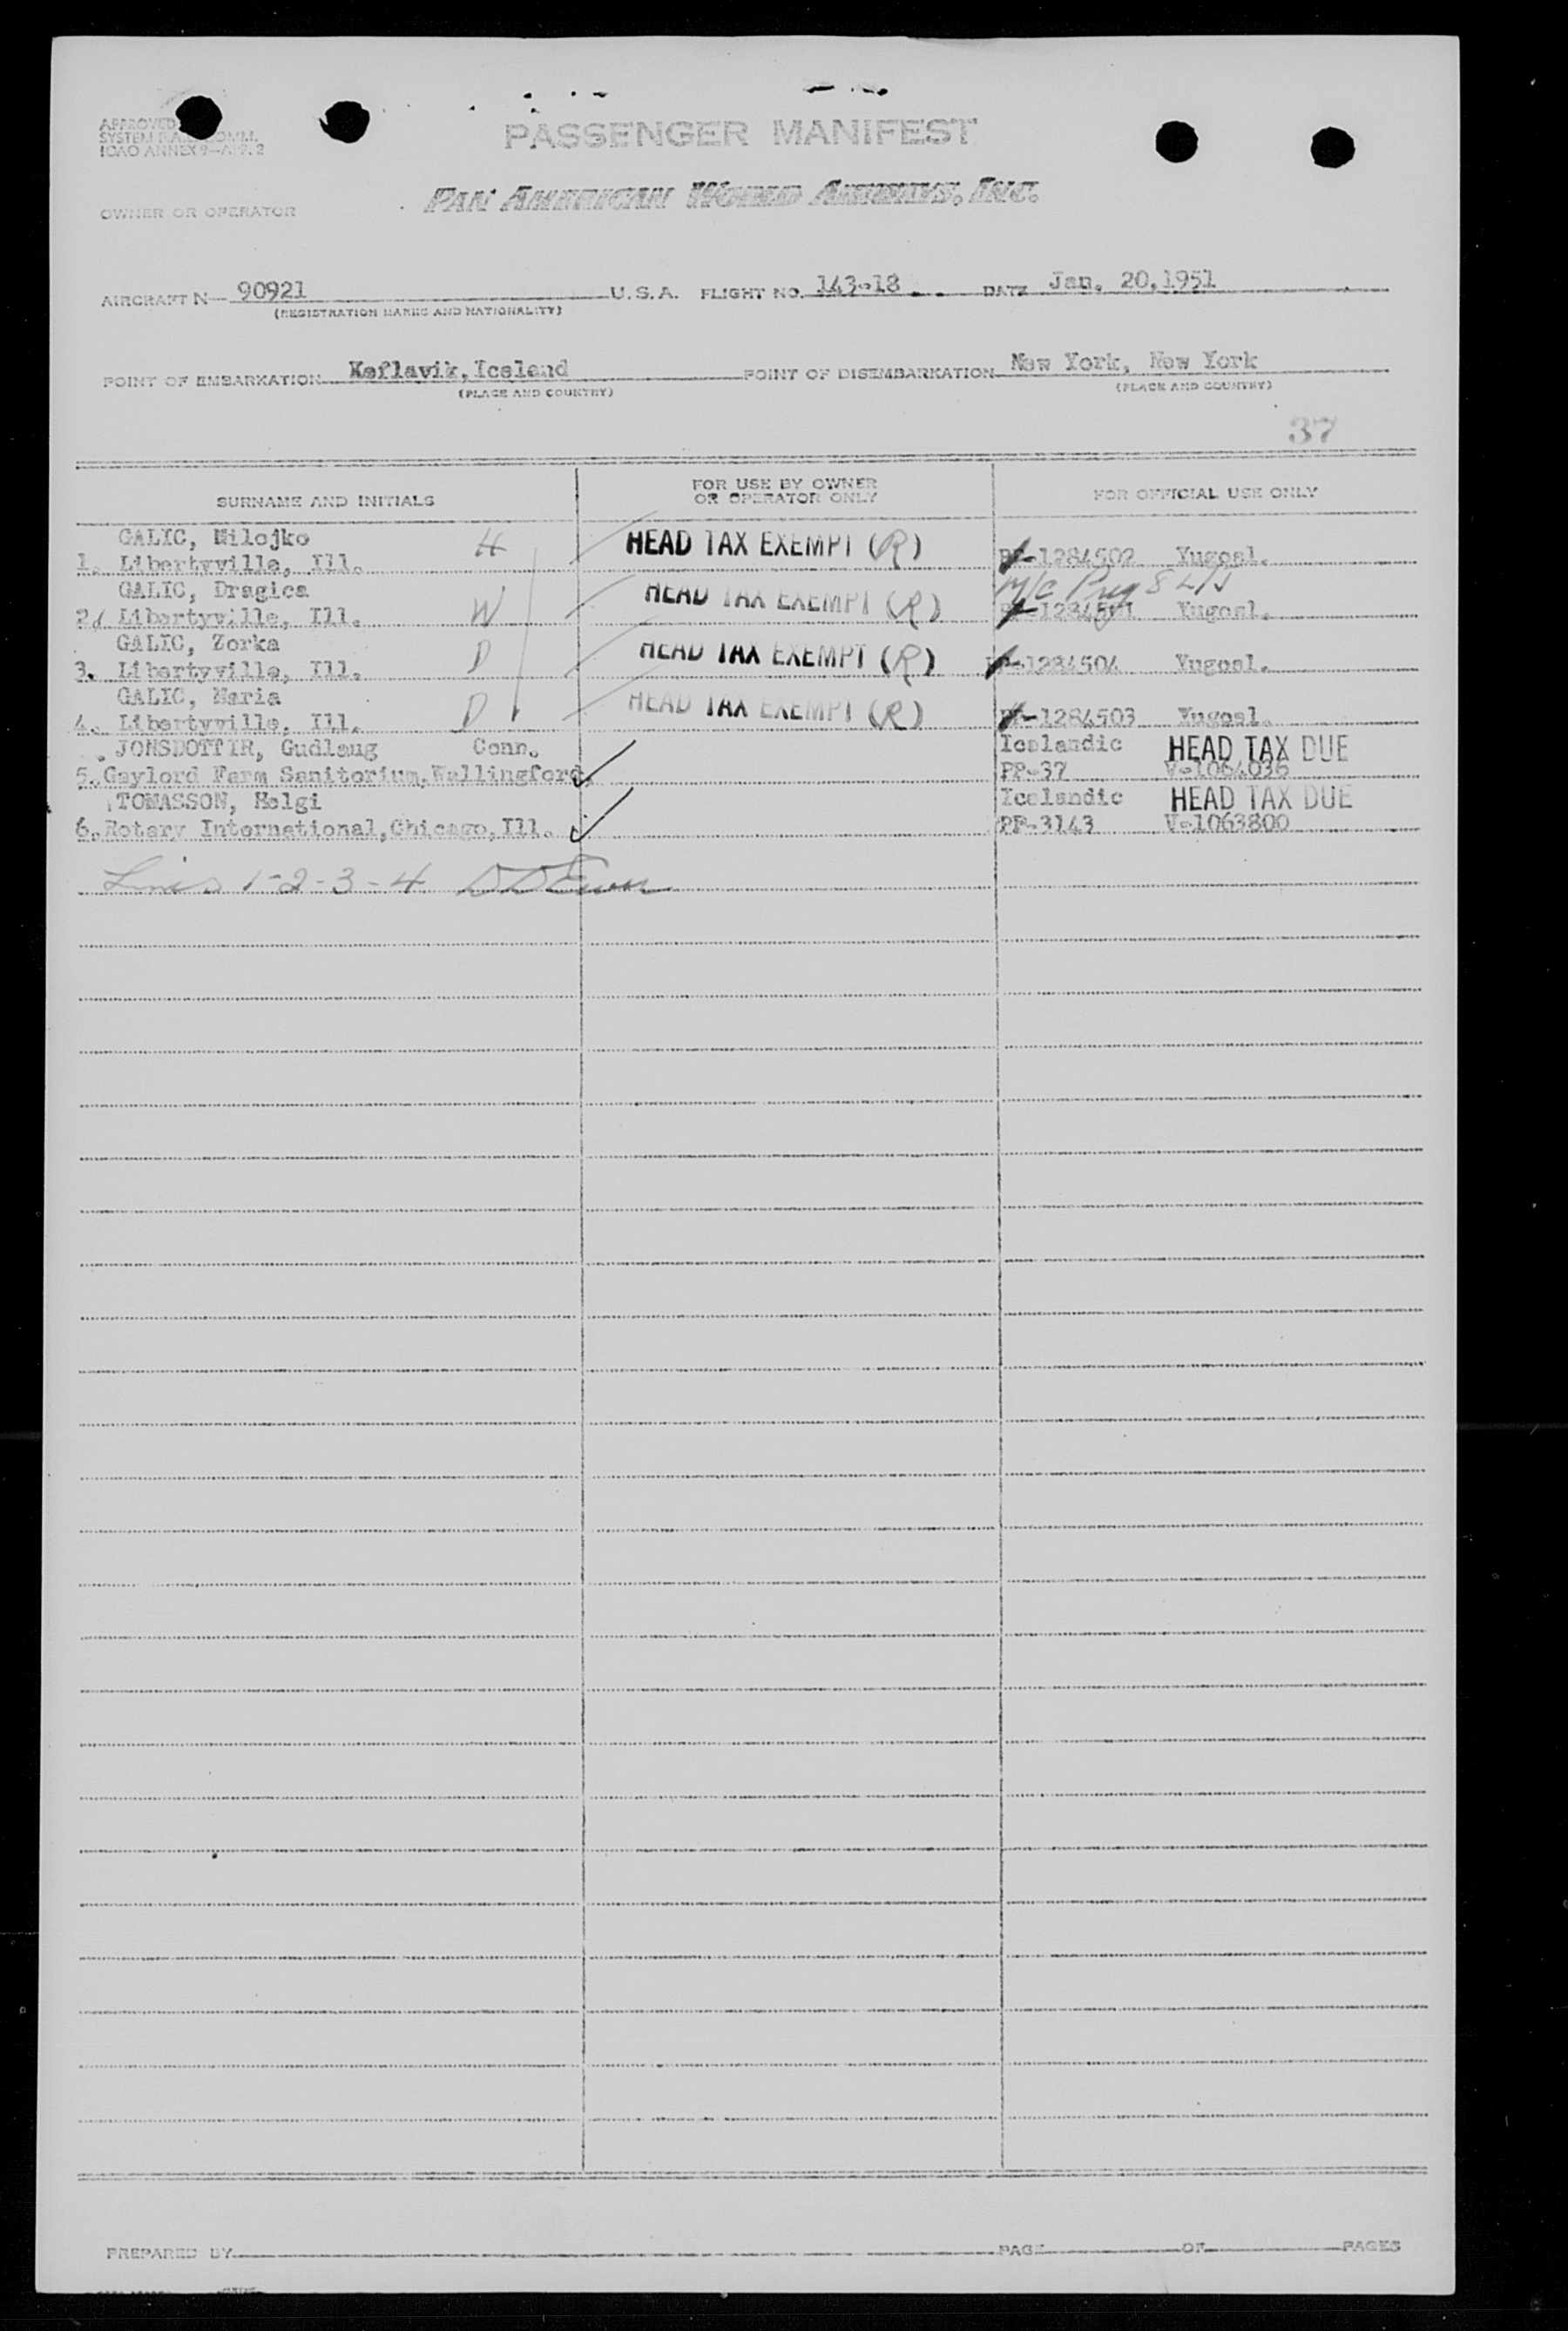 APPROVED
SYSTEM
ICAO ANNEX 9-APP. 2
PASSENGER MANIFEST
PAN AMERICAN WORLD AIRWAYS, INC.
OWNER OR OPERATOR
AIRCRAFT N 90921 U.S.A. FLIGHT NO. 143-18 DATE Jan. 20,1951
(REGISTRATION MARKS AND NATIONALITY)
POINT OF EMBARKATION Keflavik, Iceland POINT OF DISEMBARKATION New York, New York
(PLACE AND COUNTRY) (PLACE AND COUNTRY)
37
SURNAME AND INITIALS FOR USE BY OWNER OR OPERATOR ONLY FOR OFFICIAL USE ONLY
GALIC, Milojko H HEAD TAX EXEMPT (R)
1. Libertyville, Ill. -1284502 Yugosl.
GALIC, Dragica HEAD TAX EXEMPT (R)
2. Libertyville, Ill. W Yugosl.
GALIC, Zorka HEAD TAX EXEMPT (R)
3. Libertyville, Ill. D -1284504 Yugosl.
GALIC, Maria HEAD TAX EXEMPT (R)
4. Libertyville, Ill. D -1284503 Yugosl.
JONSDOTTIR, Gudlaug Conn. Icelandic HEAD TAX DUE
5. Gaylord Farm Sanitorium, Wallingford, PP-37 V-1064036
TOMASSON, Helgi Icelandic HEAD TAX DUE
6. Rotary International, Chicago, Ill. PP-3143 V-1063800
Lines 1-2-3-4
PREPARED BY PAGE OF PAGES